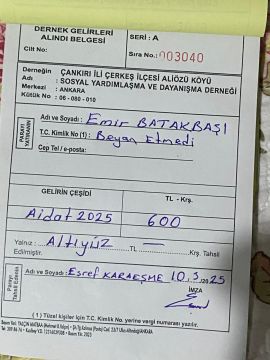 DERNEK GELİRLERİ
ALINDI BELGESİ
SERİ : A
Cilt No:
Sıra No.: 003040
Derneğin : ÇANKIRI İLİ ÇERKEŞ İLÇESİ ALİÖZÜ KÖYÜ
Adı : SOSYAL YARDIMLAŞMA VE DAYANIŞMA DERNEĞİ
Merkezi : ANKARA
Kütük No : 06 - 080 - 010
PARAYI YATIRANIN
Adı ve Soyadı : Emir BATAKBAŞI
T.C. Kimlik No (1) : Beyan Etmedi
Cep Tel / e-posta:
GELİRİN ÇEŞİDİ TL - Krş.
Aidat 2025 600
Yalnız : Altıyüz TL — Krş. Tahsil
Edilmiştir.
Parayı Tahsil Edenin
Adı ve Soyadı : Eşref KARAEŞME 10.3.2025
İMZA
( 1 ) Tüzel kişiler için T.C. Kimlik No. yerine vergi numarası yazılır.